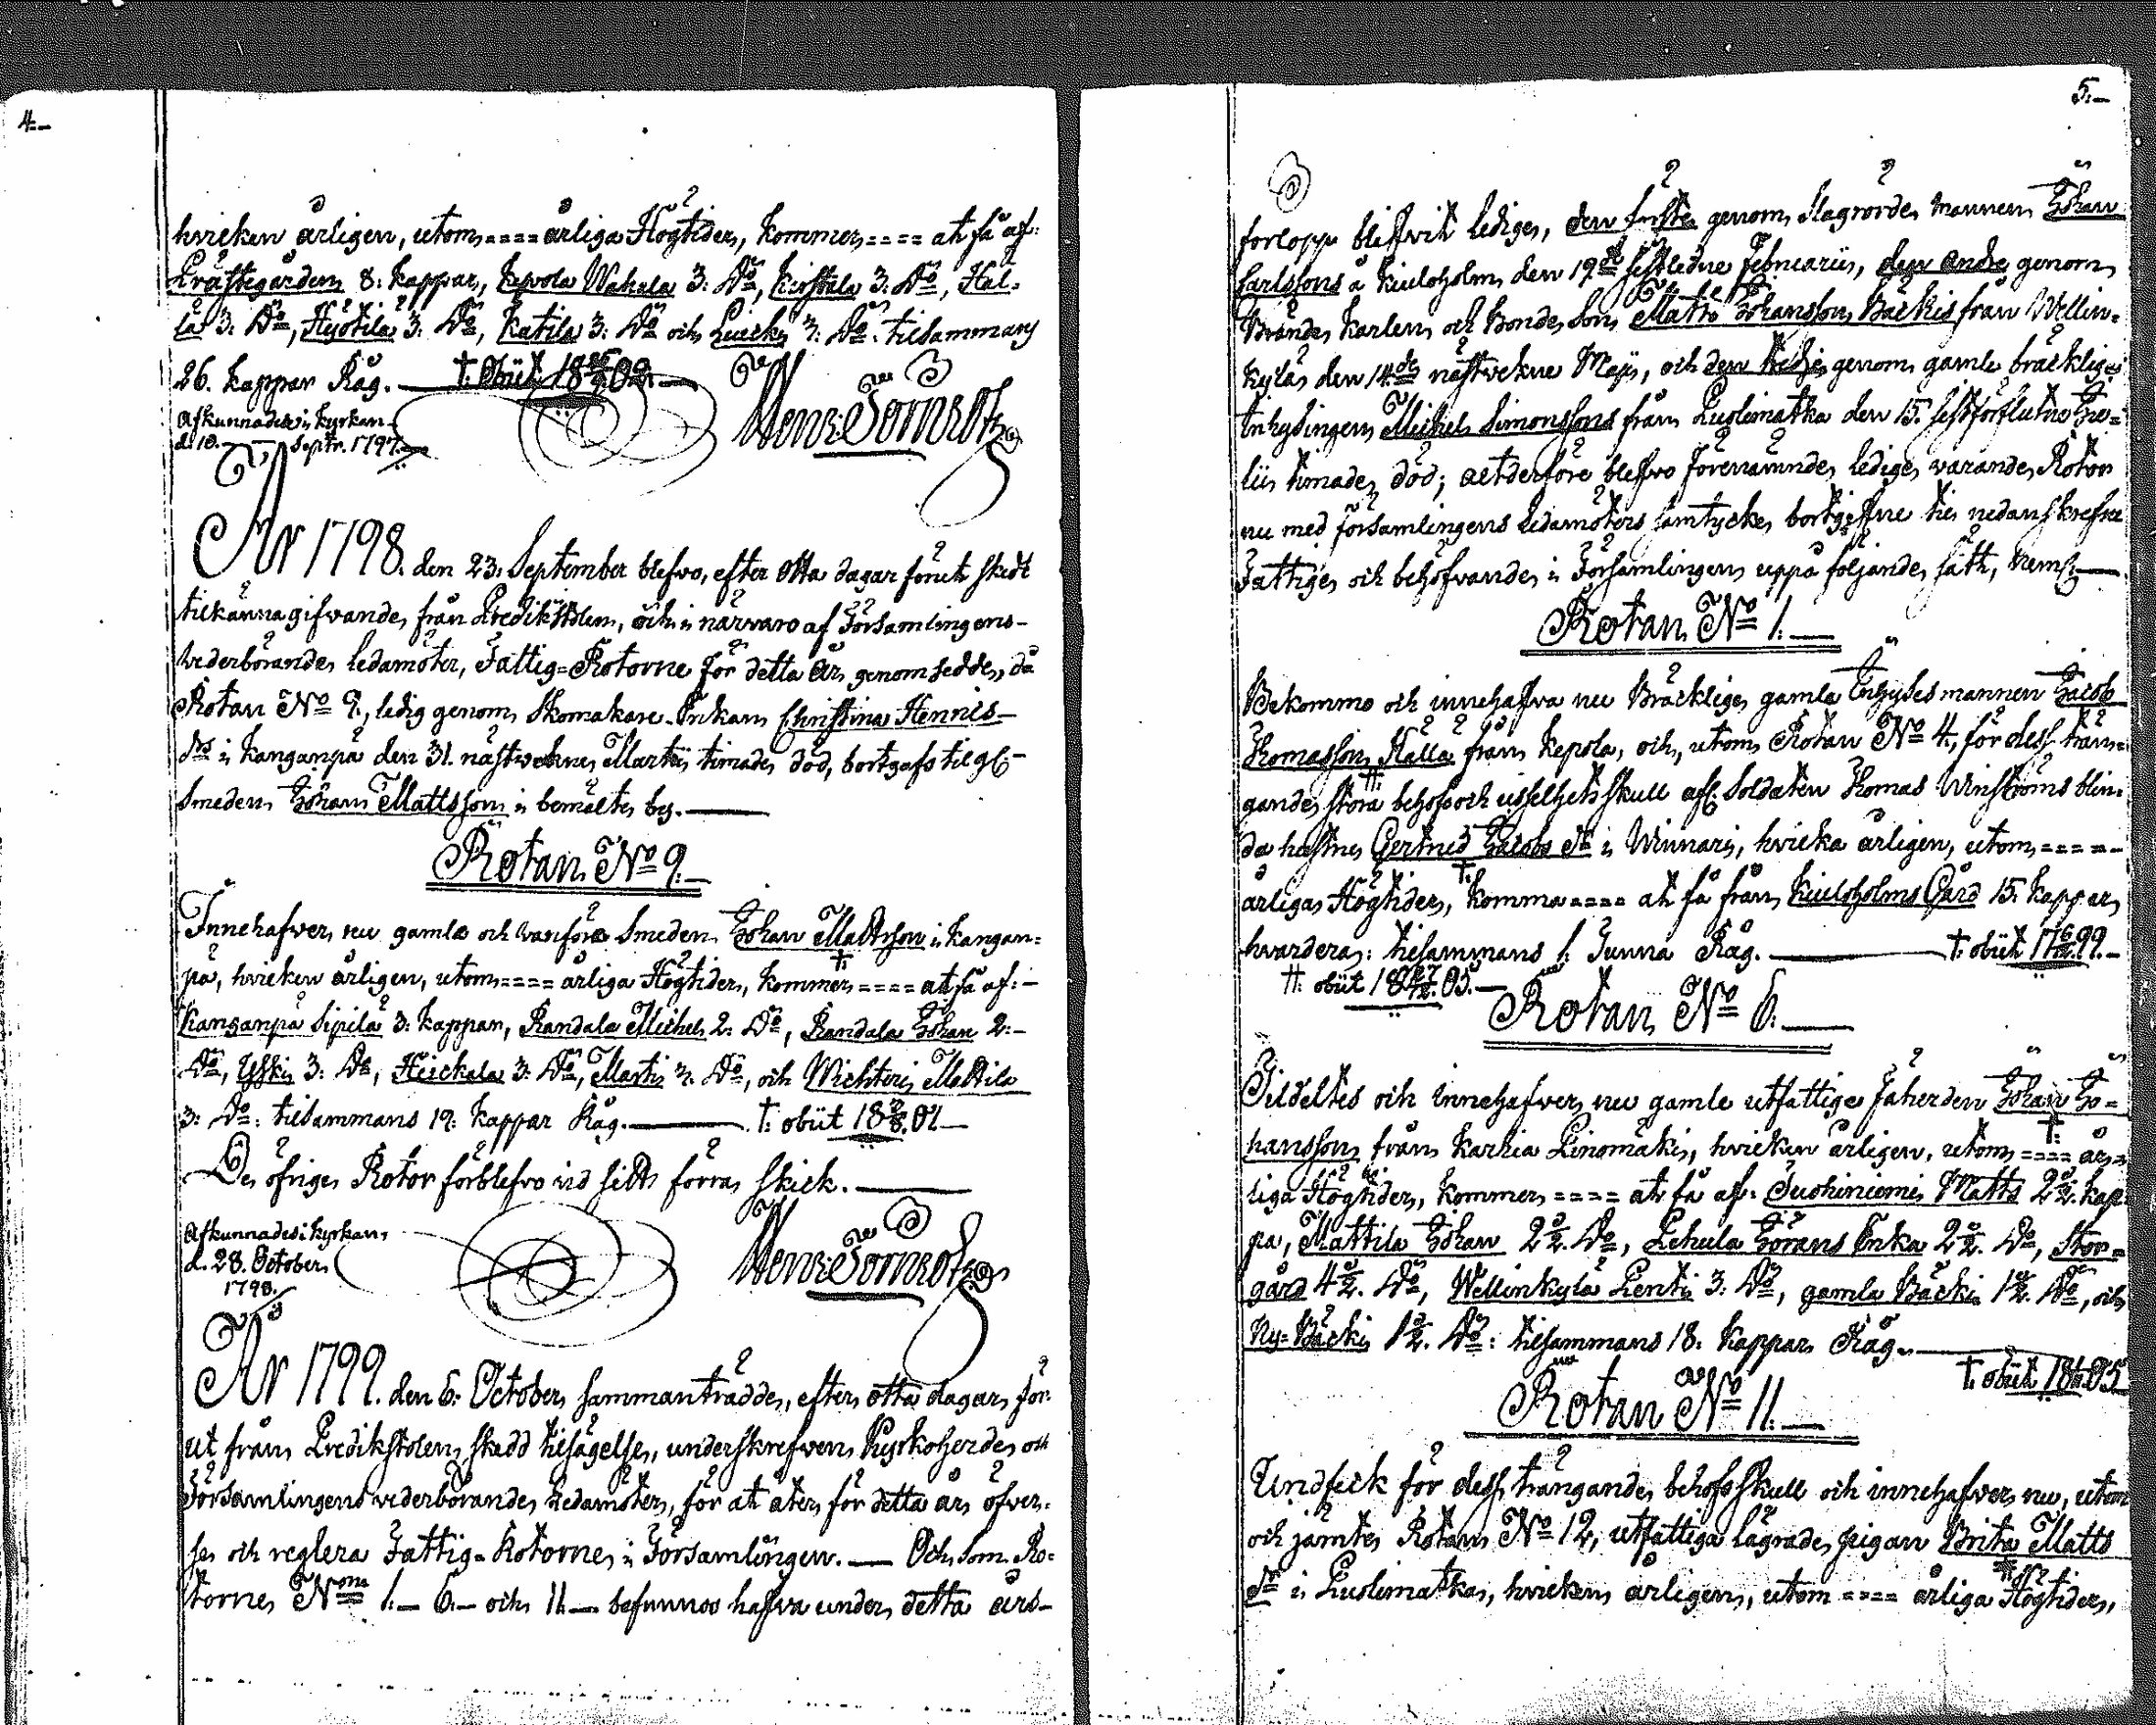 4.
hvilken årligen, utom ==== årliga Högtider, kommer ==== at få af:
Prästegården 8: kappar, Kepola Wahala 3: D:o, Kirstala 3: D:o, Häl-
lä 3: D:o, Hyötilä 3: D:o, Katila 3: D:o och 3: D:o: tilsammans
26. kappar Råg. — †. Obiit
Afkunnades i Kyrkan
d. 10. Septr. 1797.
År 1798. den 23. September blefvo, efter otta dagar förut skedt
tilkänna gifvande, från Predikstolen, och i närvaro af Församlingens
vederbörande Ledamöter, Fattig=Rotorne för detta År, genomsedde, då
Rotan N:o 9., ledig genom Skomakare-Enkans Christina Hennis-
d:r i Kanganpä den 31. nästvekne Martii timade död, bortgafs til
Smeden Johan Mattsson i bemälte by. —
Rotan N:o 9. —
Innehafver nu gamle och vanföre Smeden Johan Mattsson i Kangan-
pä, hvilken årligen, utom ==== årliga Högtider, †. kommer ==== at få af: —
Kanganpä Sipilä 3: kappar, Randala Michel 2: D:o, Randala Johan 2: —
D:o, Uski 3: D:o, Heickala 3: D:o, Martti 3: D:o, och Wichteri Mattila
3: D:o: tilsammans 19: kappar Råg. — †: obiit
De öfrige Rotor förblefvo vid sitt förra skick. —
Afkunnades i Kyrkan,
d. 28. October
1798.
År 1799. den 6: October sammanträdde, efter otta dagar för-
ut från Predikstolen skedd tilsägelse, underskrefven Kyrkoherde och
Församlingens vederbörande Ledamöter, för at åter för detta år öfver-
se och reglera Fattig-Rotorne i Församlingen. — Och som Ro-
torne N:ris 1. — 6. — och 11. — befunnos hafva under detta års-
5. —
förlopp blifvit lediga, den första genom Mannen Johan
Carlssons å Kiuloholm den 19:de sistledne Februarii, den andre genom
Karlen och Bonde Son Matts Johansson Bäckis från Wellin-
kylä den 14:de nästvekne Maji, och den tredje genom gamle bräcklige
Inhysingen Michel Simonssons från Luolimatka den 15. sistförflutne Ju-
lii timade död; altderföre blefvo förenämnde lediga varande Rotor
nu med församlingens Ledamöters samtycke, bortgifne til nedanskrefne
Fattige och behöfvande i Församlingen uppå följande sätt, neml: —
Rotan N:o 1. —
Bekommo och innehafva nu Bräcklige gamla Inhysesmannen Jacob
Thomasson Källa från Kepola, och, utom Rotan N:o 4., för dess trän-
gande stora behof och uselhets skull afl. Soldaten Thomas Winströms blin-
da hustru Gertrud Jacobs d:r i Winnari, hvilka årligen, utom ==== —
årliga Högtider, †. komma ==== at få från Kiuloholms Gård 15. kappar,
hvardera: tilsammans 1: Tunna Råg. — †: obiit
††: obiit
Rotan N:o 6. —
Tildeltes och innehafver nu gamle utfattige Faherden Johan Jo-
hansson från Karhia Linomäki, hvilken årligen, utom ==== †. år-
liga Högtider, kommer ==== at få af: Suohiniemi Matts 2 1/2. kap-
pa, Mattila Johan 2 1/2. D:o, Lehula Görans Enka 2 1/2. D:o, Stor-
gård 4 1/2. D:o, Wellinkylä Pentti 3: D:o, gamla Bäcki 1 1/2. D:o, och
Ny-Bäcki 1 1/2. D:o: tilsammans 18. kappar Råg. —
†. obiit
Rotan N:o 11. —
Undfick för dess trängande behofs skull och innehafver nu, utom
och jämte Rotan N:o 12, utfattiga lägrade pigan Brita Matts
d:r i Luolimatka, hvilken årligen, utom ==== årliga Högtider,